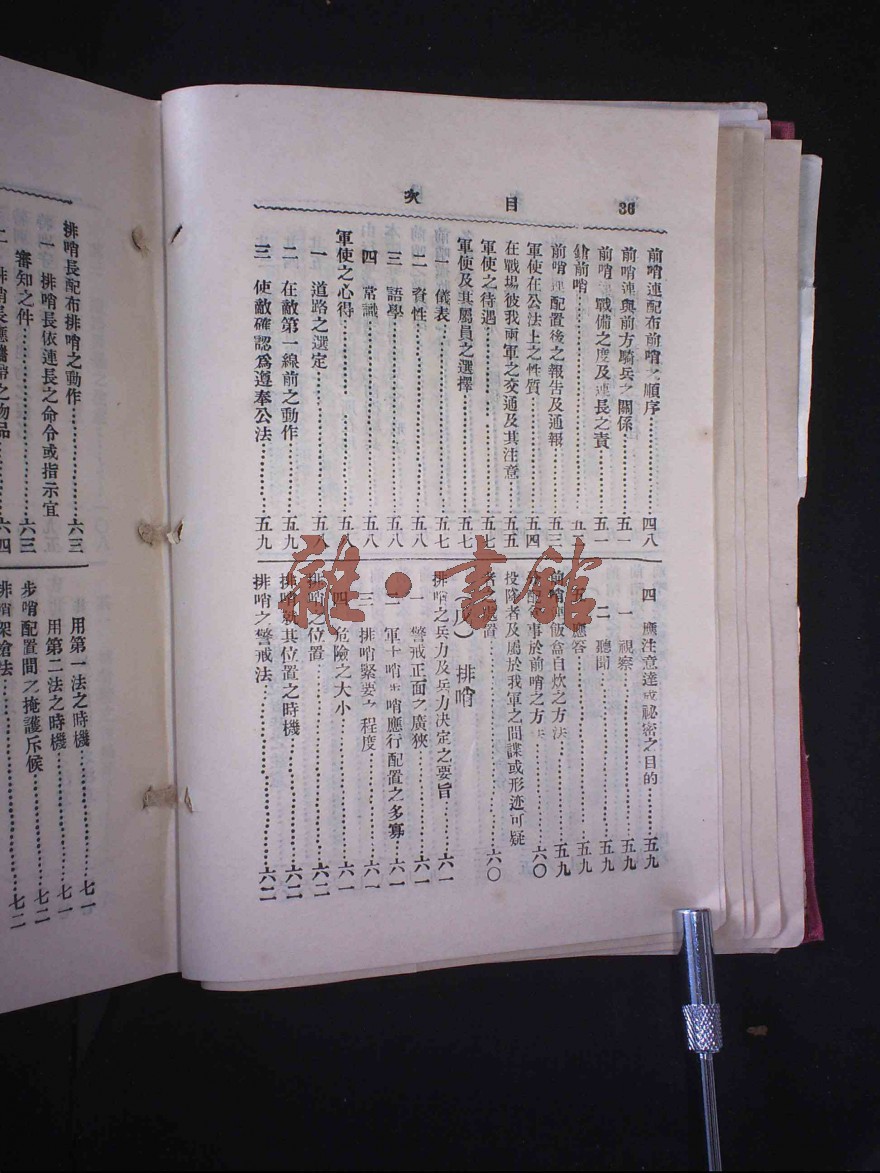 目 次
36
前哨連配布前哨之順序…………四八
前哨連與前方騎兵之關係…………五一
前哨連戰備之度及連長之責…………五一
前哨連配置後之報告及通報…………五三
軍使在公法上之性質…………五四
在戰場彼我兩軍之交通及其注意…………五五
軍使之待遇…………五七
軍使及其屬員之選擇…………五七
一 儀表…………五七
二 資性…………五八
三 語學…………五八
四 常識…………五八
軍使之心得…………五八
一 道路之選定…………五八
二 在敵第一線前之動作…………五九
三 使敵確認爲遵奉公法…………五九
四 應注意達成祕密之目的…………五九
一 視察…………五九
二 聽聞…………五九
五 應答…………五九
前哨連飯盒自炊之方法…………五九
事於前哨之方法…………六〇
投降者及屬於我軍之間諜或形迹可疑
者之處置…………六〇
(戊) 排哨
排哨之兵力及兵力決定之要旨…………六一
一 警戒正面之廣狹…………六一
二 軍士哨步哨應行配置之多寡…………六一
三 排哨緊要之程度…………六一
四 危險之大小…………六一
排哨之位置…………六二
排哨就其位置之時機…………六二
排哨之警戒法…………六二
排哨長配布排哨之動作…………六三
一 排哨長依連長之命令或指示宜
審知之件…………六三
二 排哨長應攜帶之物品…………六四
用第一法之時機…………七一
用第二法之時機…………七一
步哨配置間之掩護斥候…………七二
排哨架槍法…………七二
雜·書館